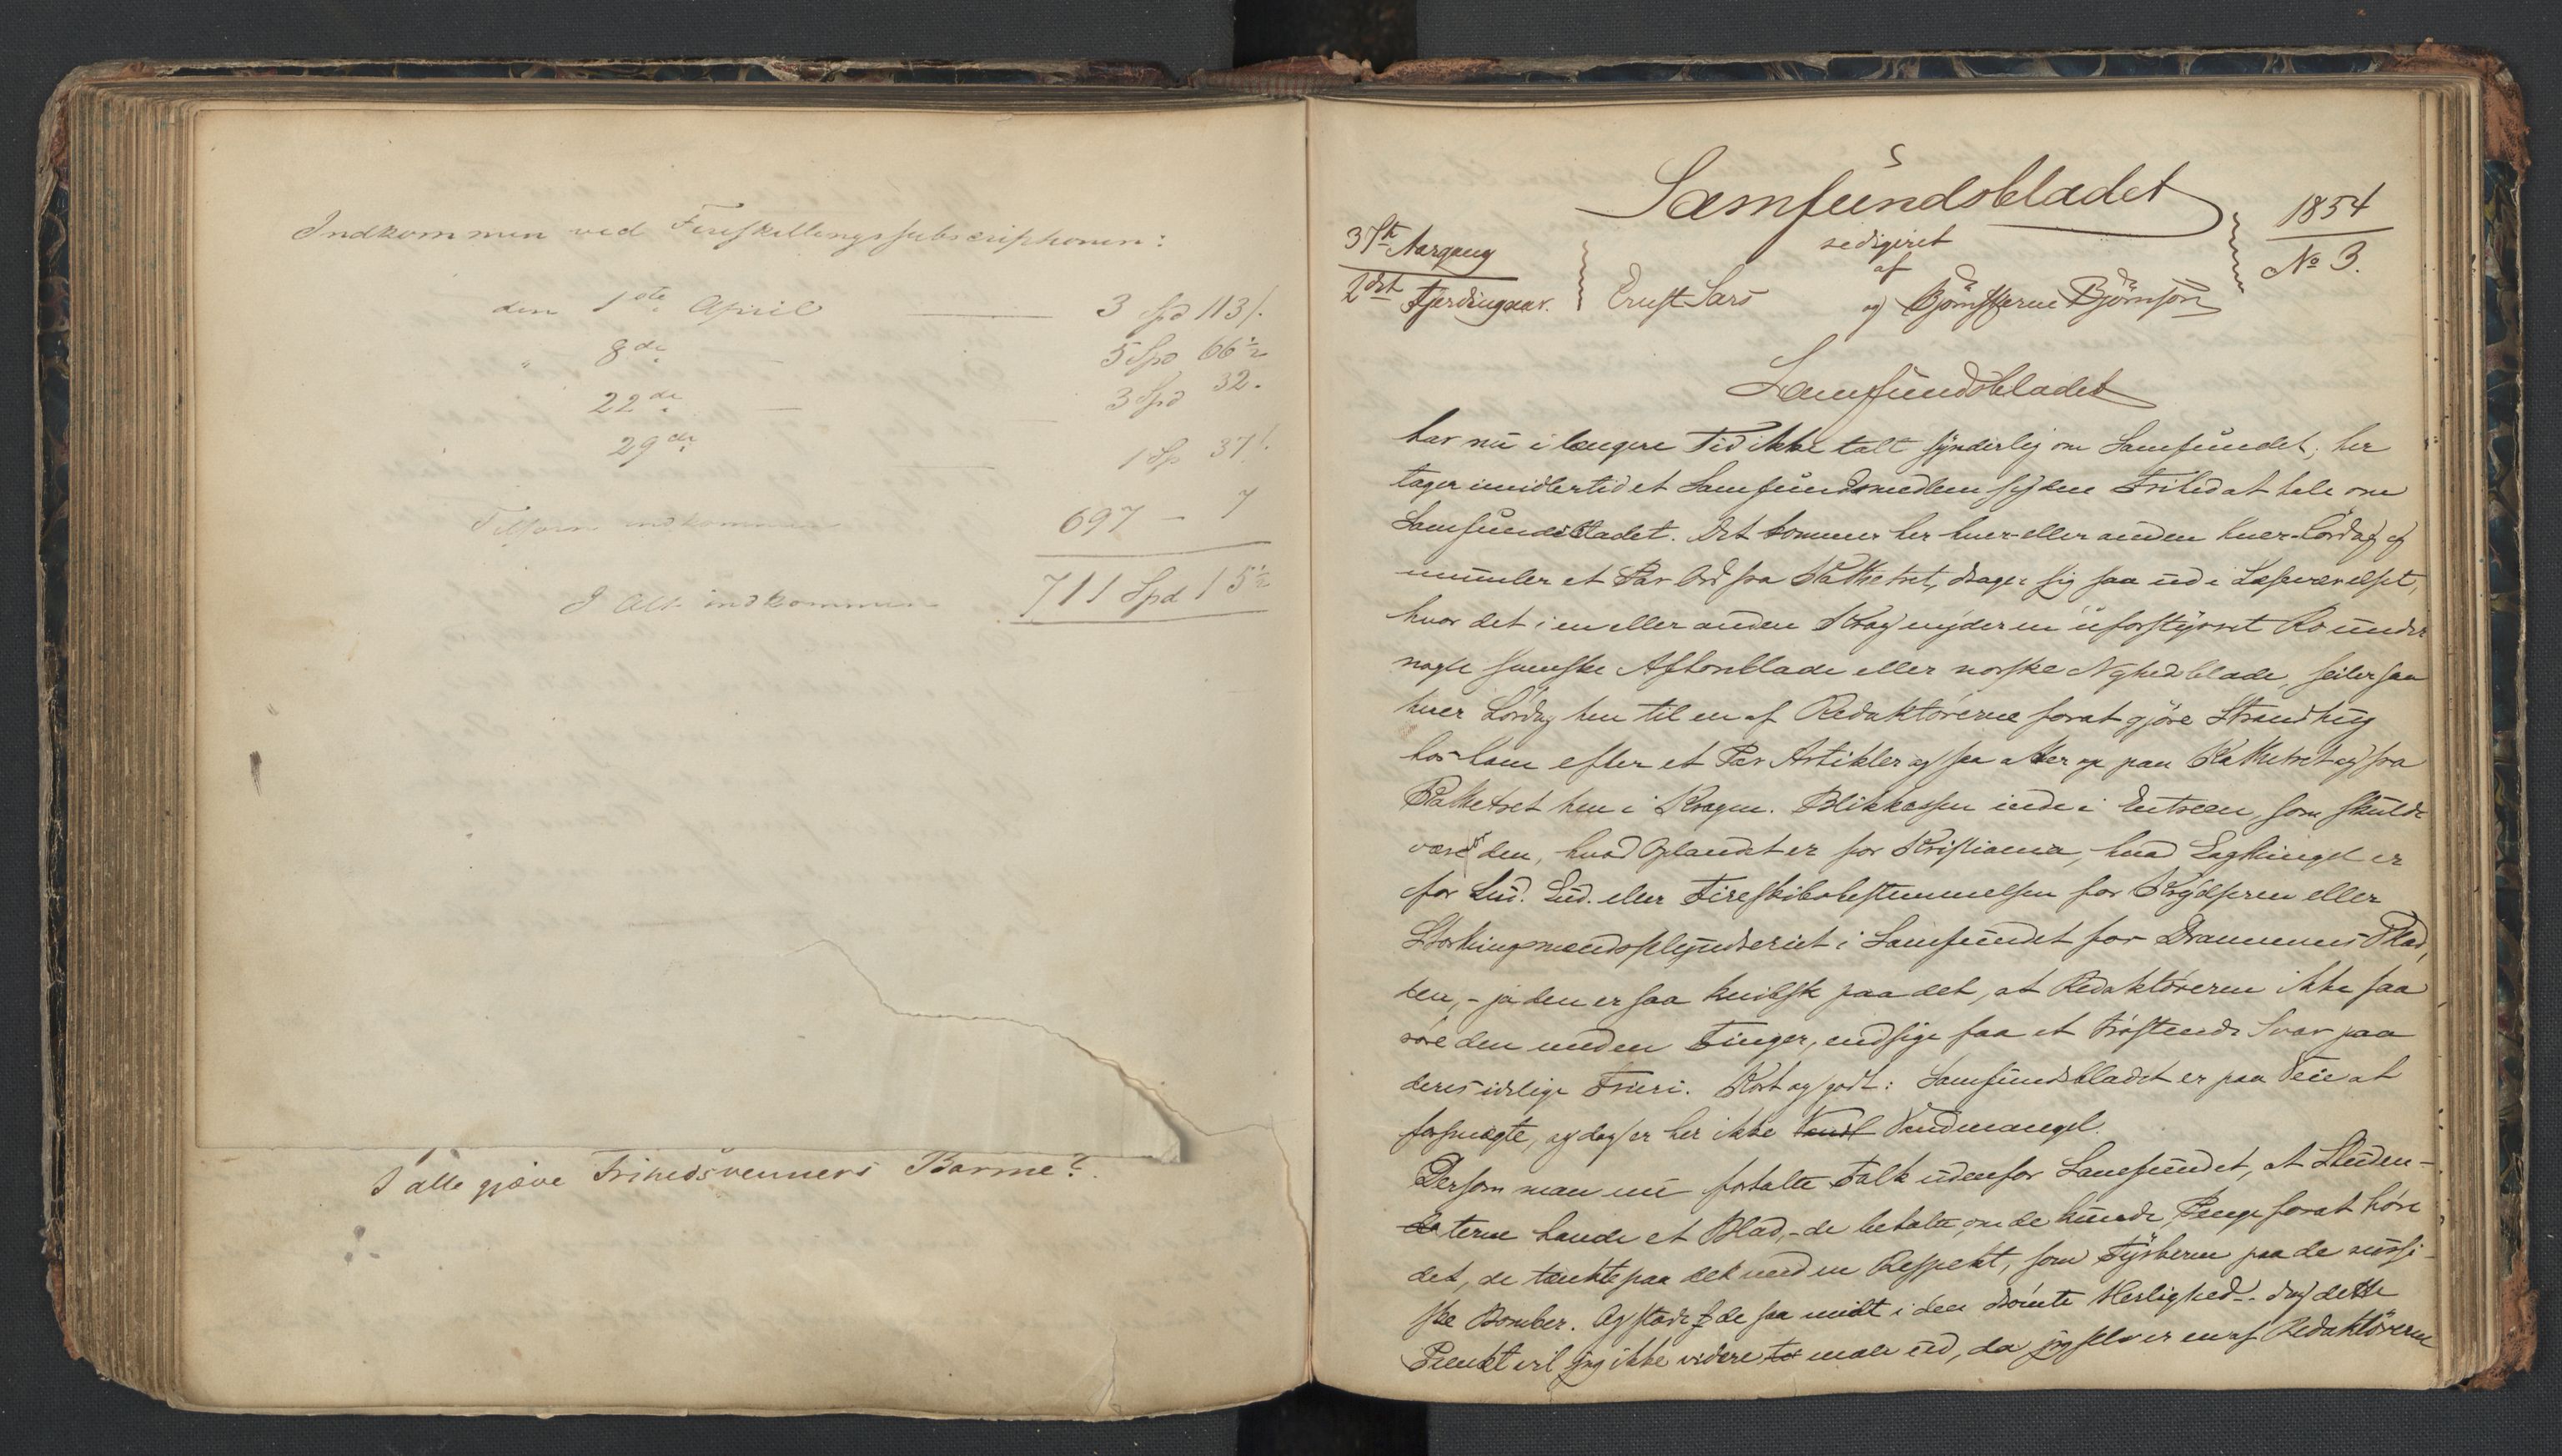 Indkommen ved Fireskillingssubscriptionen:
den 1ste April 3 Spd 113 s.
" 8de 5 Spd 66 1/2
22de 3 Spd 32.
29de 1 Sp 37 s.
Tilforn indkommen 697 - 7
I Alt indkommen 711 Spd 15 1/2
I alle gjæve Frihedsvenners Barme?
Samfundsbladet
37te Aargang
2det Fjerdingaar.
redigeret
af
Ernst Sars og Bjørnstjerne Bjørnson
1854
No 3.
Samfundsbladet
har nu i længere Tid ikke talt synderlig om Samfundet, her
tager imidlertid et Samfundsmedlem sig den Frihed at tale om
Samfundsbladet. Det kommer her hver eller anden hver Lørdag og
mumler et Par Ord fra Kathetret, drager sig saa ud i Læseværelset,
hvor det i en eller anden Krog nyder en uforstyrret Ro under
nogle svenske Aftonblade eller norske Nyhedsblade, seiler saa
hver Lørdag hen til en af Redaktørerne forat gjøre Strandhug
hos ham efter et Par Artikler og saa atter op paa Kathetret og fra
Kathetret hen i Krogen. Blikkassen inde i Entreen, som skulde
være den, hvad Oplandet er for Kristiania, hvad Lagthinget er
for Lud. Lud. eller Fireskibsbestemmelsen for Krydseren eller
Storthingsmandsplyndreriet i Samfundet for Drammens Blad,
den, - ja den er saa knibsk paa det, at Redaktøreren ikke faa
røre den med en Finger, endsige faa et trøstende Svar paa
deres idelige Frieri. Kort og godt: Samfundsbladet er paa Veie at
forsmægte, og dog er her ikke Vandmangel.
Dersom man nu fortalte Folk udenfor Samfundet, at Studen-
terne havde et Blad, - de betalte, om de kunde, Penge forat høre
det, de tænkte paa det med en Respekt, som Tyrkerne paa de russi-
ske Bomber. Og stode de saa midt i den drømte Herlighed - dog dette
Punkt vil jeg ikke videre male ud, da jeg selv er en af Redaktørerne